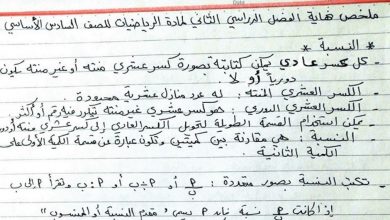 ملخص نهاية الفصل الدراسي الثاني لمادة الرياضيات للصف السادس الأساسي
* النسبة *
- كل كسر عادي يمكن كتابته بصورة كسر عشري منته أو غير منته يكون
دورية أو لا.
- الكسر العشري المنته : له عدد منازل عشرية محدودة
- الكسر العشري الدوري : هو كسر عشري غير منته يتكرر فيه رقم أو أكثر.
- يمكن استخدام القسمة الطويلة لتحويل الكسر العادي إلى كسر عشري منته أو دوري
- النسبة : هي مقارنة بين كميتين وتكون عبارة عن قسمة الكمية الأولى على
الكمية الثانية.
- تكتب النسبة بصور متعددة : أ/ب أو أ ÷ ب أو أ : ب وتقرأ أ إلى ب
إذا كانت أ/ب نسبة فإن أ يسمى " مقدم النسبة أو المنسوب "